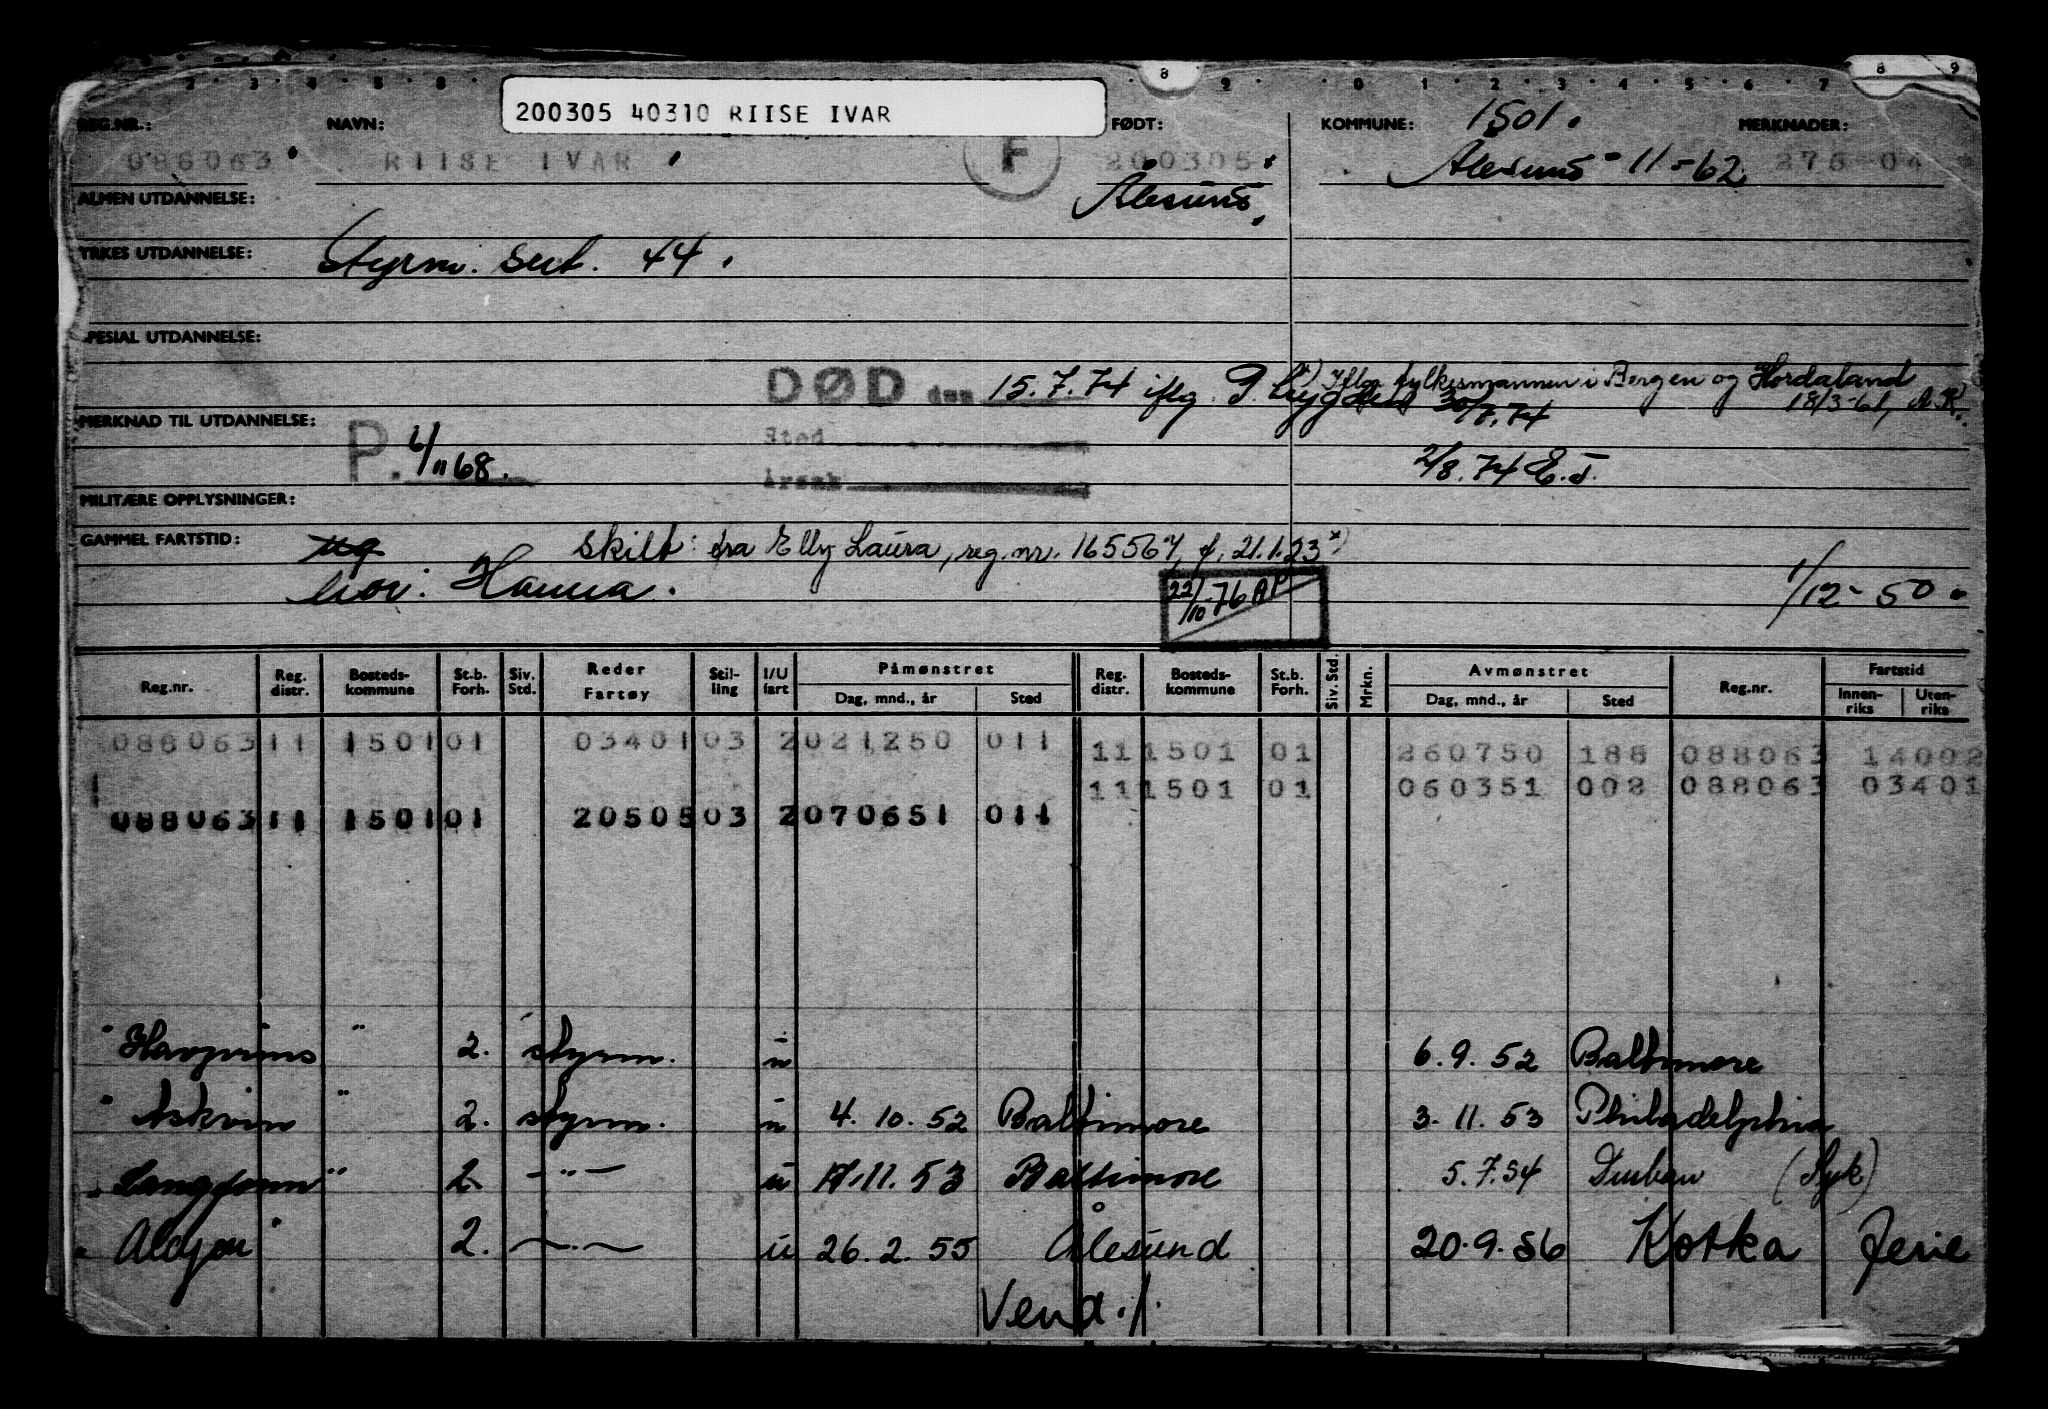 200305 40310 RIISE IVAR
REG.NR.: NAVN: FØDT: KOMMUNE: 1501. MERKNADER:
088063 RIISE IVAR F 200305 Ålesund - 11-62 276 04
ALMEN UTDANNELSE: Ålesund.
YRKES UTDANNELSE: Styrm. sert. 44.
SPESIAL UTDANNELSE:
DØD den 15.7.74 iflg. 30/7.74
x) Iflg. fylkesmannen i Bergen og Hordaland
18/3-61, A.K.
MERKNAD TIL UTDANNELSE: P. 6/11 68. Sted
2/8.74 E.J.
Årsak
MILITÆRE OPPLYSNINGER:
GAMMEL FARTSTID: ug Skilt: fra Elly Laura, reg.nr. 165567, f. 21.1.23 x)
Hanna. 22/10-76 AP 1/12-50.
Reg.nr. Reg. distr. Bosteds-kommune St.b. Forh. Siv. Std. Reder Fartøy Stil-ling I/U fart Påmønstret Dag, mnd., år Sted Reg. distr. Bosteds-kommune St.b. Forh. Siv. Std. Mrkn. Avmønstret Dag, mnd., år Sted Reg.nr. Fartstid Innen-riks Uten-riks
088063 11 1501 01 03401 03 2 021250 011 11 1501 01 260750 188 088063 14002
11 1501 01 060351 008 088063 03401
088063 11 1501 01 20505 03 2 070651 011
" Havprins " 2. styrm. u 6.9.52 Baltimore
" Askvin " 2. styrm. u 4.10.52 Baltimore 3.11.53 Philadelphia
" " 2. -"- u 17.11.53 Baltimore 5.7.54 Durban (Syk)
" " 2. -"- u 26.2.55 Ålesund 20.9.56 Kotka Ferie
Vend ./.